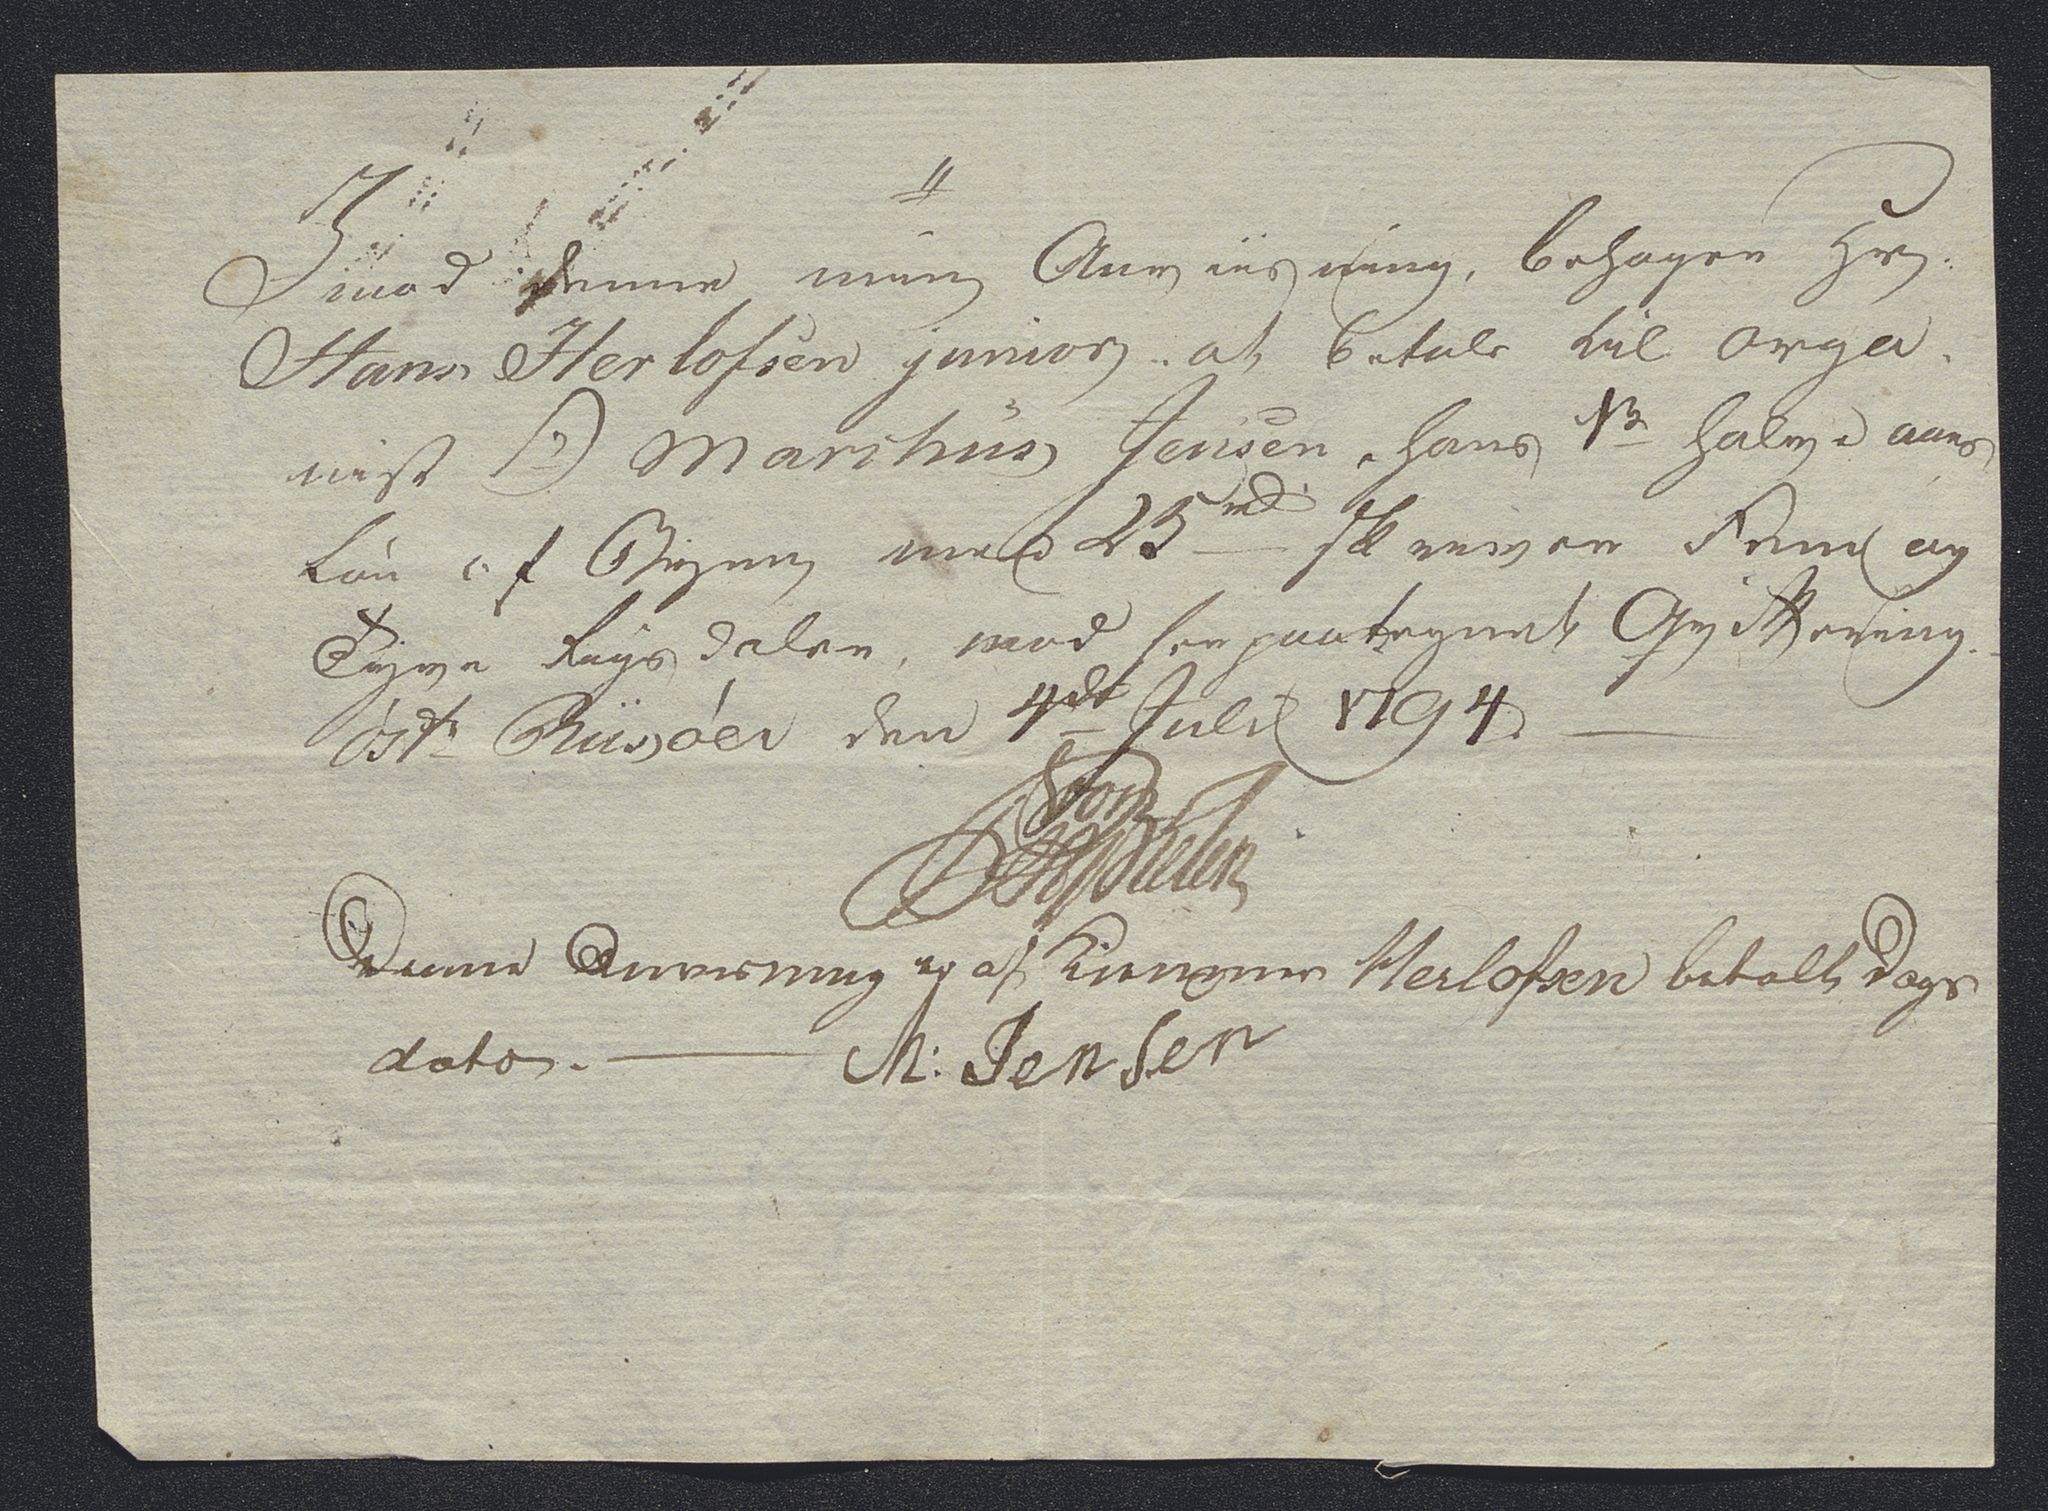 Imod denne min Anviisning, behager Hr.
Hans Herlofsen junior at betale til Orga-
nist Marthus Jensen, hans 1ste halve aars
Løn af Byen med 25 rd skriver Fem og
Tyve Rigsdaler, mod herpaategnet Qvittering.
Øst Riisøer den 4de Julii 1794.
Denne Anvisning er af Kiemner Herlofsen betalt Dags
dato. M: Jensen